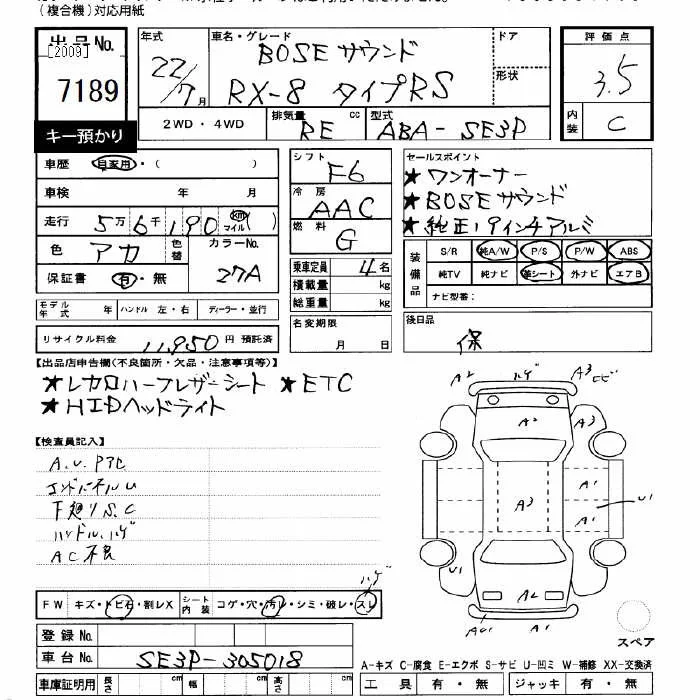 (複合機)対応用紙
出品No.
[2009]
7189
キー預かり
年式
22/7月
車名・グレード
BOSEサウンド
RX-8 タイプRS
ドア
形状
評価点
3.5
内装
C
2WD・4WD
排気量
RE
cc
型式
ABA-SE3P
車歴
自家用・( )
車検 年 月
走行
5万6千190 km マイル ( )
色
アカ
色替
カラーNo.
27A
保証書
有・無
シフト
F6
冷房
AAC
燃料
G
乗車定員
4名
積載量 kg
総重量 kg
セールスポイント
★ワンオーナー
★BOSEサウンド
★純正19インチアルミ
装備品
S/R 純A/W P/S P/W ABS
純TV 純ナビ 革シート 外ナビ エアB
ナビ型番:
モデル年式
ハンドル 左・右
ディーラー・並行
リサイクル料金
11,950円 預託済
名変期限
月 日
後日品
保
【出品店申告欄(不良箇所・欠品・注意事項等)】
★レカロハーフレザーシート ★ETC
★HIDヘッドライト
【検査員記入】
下廻りS.C
ハンドル.ハゲ
AC不良
A2 ハゲ A3
A2 A3
A3 A1 U1
A1
U1 A2
ハゲ
スペア
FW キズ・トビ石・割レX
シート内装
コゲ・穴・汚レ・シミ・破レ・スレ
登録No.
車台No.
SE3P-305018
A-キズ C-腐食 E-エクボ S-サビ U-凹ミ W-補修 XX-交換済
車庫証明用 長さ cm 幅 cm 高さ cm
工具 有・無 ジャッキ 有・無